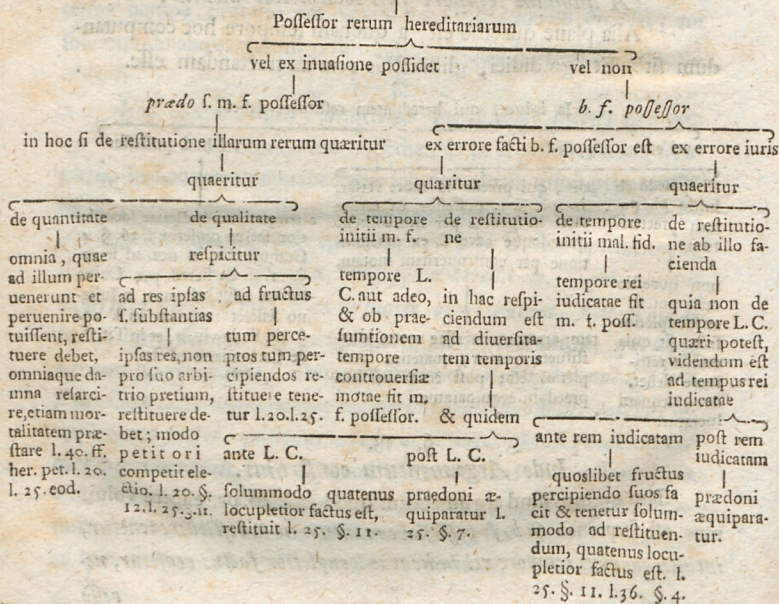 Poſſeſſor rerum hereditariarum
vel ex inuaſione poſſidet
vel non
prædo ſ. m. f. poſſeſſor
b. f. poſſeſſor
in hoc ſi de reſtitutione illarum rerum quæritur
ex errore facti b. f. poſſeſſor eſt
ex errore iuris
quaeritur
quæritur
quaeritur
de quantitate
omnia, quae
ad illum per-
uenerunt et
peruenire po-
tuiſſent, reſti-
tuere debet,
omniaque da-
mna reſarci-
re, etiam mor-
talitatem præ-
ſtare l. 40. ff.
her. pet. l. 20.
l. 25. eod.
de qualitate
reſpicitur
ad res ipſas
ſ. ſubſtantias
ipſas res, non
pro ſuo arbi-
trio pretium,
reſtituere de-
bet; modo
petitori
competit ele-
ctio. l. 20. §.
12. l. 25. §. 11.
ad fructus
tum perce-
ptos tum per-
cipiendos re-
ſtituere tene-
tur l. 20. l. 25.
de tempore
initii m. f.
tempore L.
C. aut adeo,
& ob præ-
ſumtionem
tempore
controuerſiæ
motae fit m.
f. poſſeſſor.
de reſtitutio-
ne
in hac reſpi-
ciendum eſt
ad diuerſita-
tem temporis
& quidem
ante L. C.
ſolummodo quatenus
locupletior factus eſt,
reſtituit l. 25. §. 11.
poſt L. C.
praędoni æ-
quiparatur l.
25. §. 7.
de tempore
initii mal. fid.
tempore rei
iudicatae fit
m. f. poſſ.
de reſtitutio-
ne ab illo fa-
cienda
quia non de
tempore L. C.
quæri poteſt,
videndum eſt
ad tempus rei
iudicatae
ante rem iudicatam
quoslibet fructus
percipiendo ſuos fa
cit & tenetur ſolum-
modo ad reſtituen-
dum, quatenus locu-
pletior factus eſt. l.
25. §. 11. l. 36. §. 4.
poſt rem
iudicatam
prædoni
æquipara-
tur.